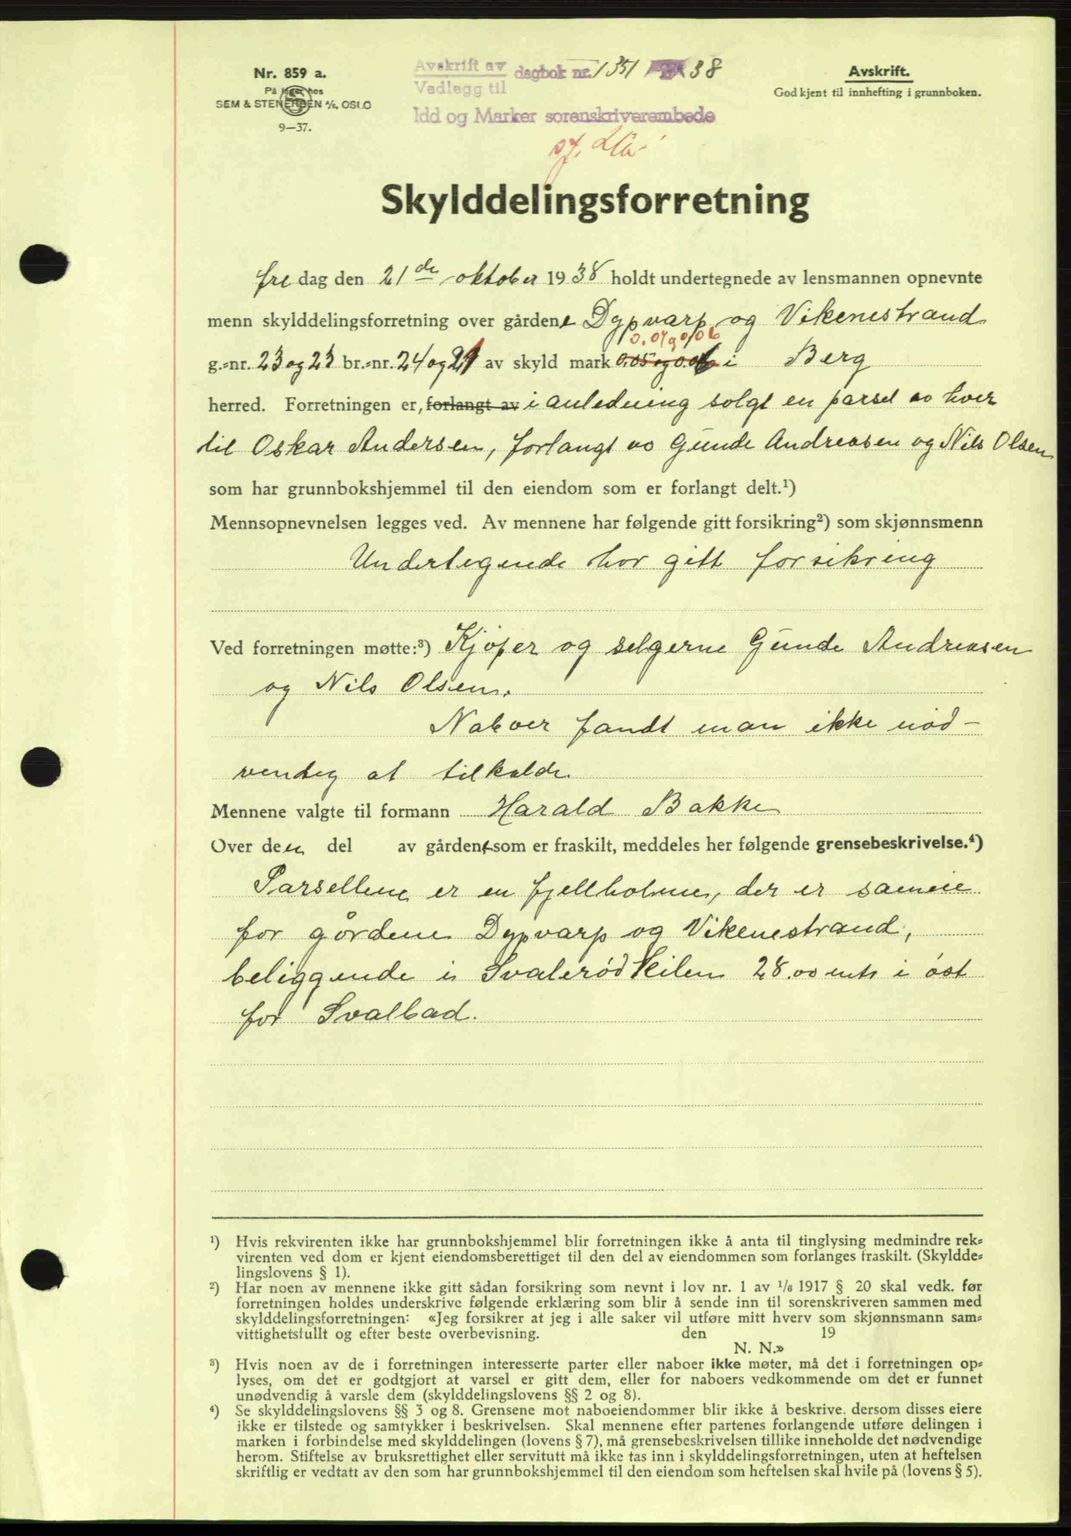 Nr. 859 a.
På lager hos
SEM & STENERSEN A/S, OSLO
9—37.
Avskrift av
Vedlegg til
dagbok nr. 1351 38
Idd og Marker sorenskriverembede
Avskrift.
Godkjent til innhefting i grunnboken.
Skylddelingsforretning
fredag den 21de oktober 1938 holdt undertegnede av lensmannen opnevnte
menn skylddelingsforretning over gårdene Dypvarp og Vikenestrand
0.04 og 0,06
g.=nr. 23 og 23 br.=nr. 24 og 21 av skyld mark 0.05 og i Berg
herred. Forretningen er, forlangt av i anledning solgt en parsel av hver
til Oskar Andersen, forlangt av Gunde Andreasen og Nils Olsen
som har grunnbokshjemmel til den eiendom som er forlangt delt.¹)
Mennsopnevnelsen legges ved. Av mennene har følgende gitt forsikring²) som skjønnsmenn
Undertegende har gitt forsikring
Ved forretningen møtte:³) Kjøper og selgerne Gunde Andreasen
og Nils Olsen.
Naboer fandt man ikke nød-
vendig at tilkalde
Mennene valgte til formann Harald Bakke
Over den del av gårdene som er fraskilt, meddeles her følgende grensebeskrivelse.⁴)
Parsellene er en fjellholme, der er sameie
for gårdene Dypvarp og Vikenestrand,
beliggende i Svalerødkilen 28.00 mtr i øst
for Svalbad.
¹) Hvis rekvirenten ikke har grunnbokshjemmel blir forretningen ikke å anta til tinglysing medmindre rek=
virenten ved dom er kjent eiendomsberettiget til den del av eiendommen som forlanges fraskilt. (Skyldde=
lingslovens § 1).
²) Har noen av mennene ikke gitt sådan forsikring som nevnt i lov nr. 1 av 1/8 1917 § 20 skal vedk. før
forretningen holdes underskrive følgende erklæring som blir å sende inn til sorenskriveren sammen med
skylddelingsforretningen: «Jeg forsikrer at jeg i alle saker vil utføre mitt hverv som skjønnsmann sam=
vittighetsfullt og efter beste overbevisning. den 19
N. N.»
³) Hvis noen av de i forretningen interesserte parter eller naboer ikke møter, må det i forretningen op=
lyses, om det er godtgjort at varsel er gitt dem, eller for naboers vedkommende om det er funnet
unødvendig å varsle dem (skylddelingslovens §§ 2 og 8).
⁴) Se skylddelingslovens §§ 3 og 8. Grensene mot naboeiendommer blir ikke å beskrive. dersom disses eiere
ikke er tilstede og samtykker i beskrivelsen. Skal mennene efter partenes forlangende utføre delingen i
marken i forbindelse med skylddelingen (lovens § 7), må grensebeskrivelsen tillike inneholde det nødvendige
herom. Stiftelse av bruksrettighet eller servitutt må ikke tas inn i skylddelingsforretningen, uten at heftelsen
skriftlig er vedtatt av den som har grunnbokshjemmel til den eiendom som heftelsen skal hvile på (lovens § 5).